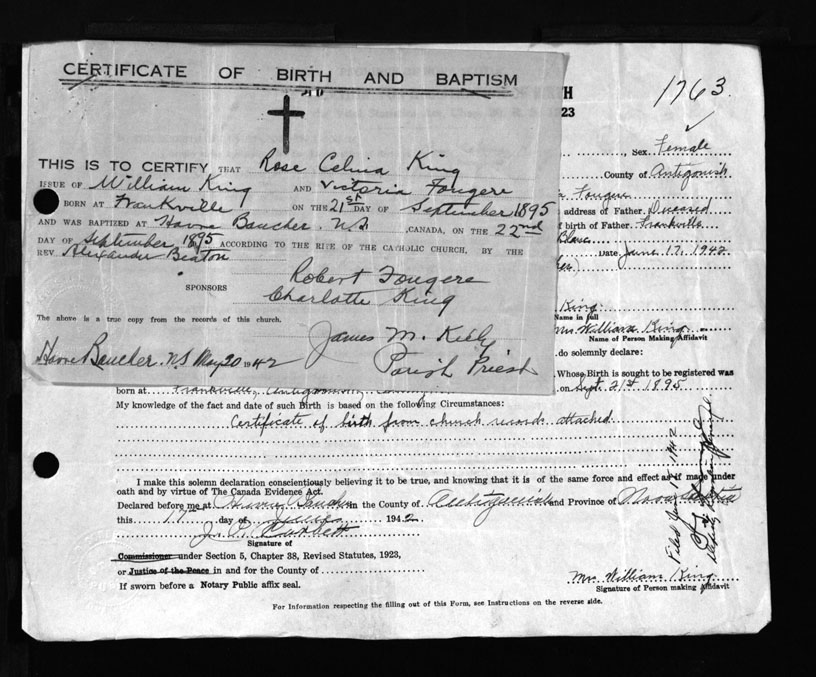 CERTIFICATE OF BIRTH AND BAPTISM
THIS IS TO CERTIFY THAT Rose Celina King
ISSUE OF William King AND Victoria Fougere
BORN AT Frankville ON THE 21st DAY OF September 1895
AND WAS BAPTIZED AT Havre Baucher. N.S. , CANADA, ON THE 22nd
DAY OF September 1895 ACCORDING TO THE RITE OF THE CATHOLIC CHURCH, BY THE
REV. Alexander Beaton
SPONSORS Robert Fougere
Charlotte King
The above is a true copy from the records of this church.
James M. Kiely
Havre Baucher N.S May 20 1942 Parish Priest
H
1763.
23
Sex Female
County of Antigonish
Fougere
address of Father Deceased
of birth of Father Frankville
Date June 17, 1942
King.
Name in full
Mrs William King
Name of Person Making Affidavit
do solemnly declare:
Whose Birth is sought to be registered was
born at Frankville, on Sept. 21st 1895
My knowledge of the fact and date of such Birth is based on the following Circumstances:
Certificate of birth from church records attached
I make this solemn declaration conscientiously believing it to be true, and knowing that it is of the same force and effect as if made under
oath and by virtue of The Canada Evidence Act.
Declared before me at in the County of Antigonish and Province of Nova Scotia
this 17th day of 1942
Signature of
Commissioner under Section 5, Chapter 38, Revised Statutes, 1923,
or Justice of the Peace in and for the County of
If sworn before a Notary Public affix seal.
Mrs William King
Signature of Person making Affidavit
For Information respecting the filling out of this Form, see Instructions on the reverse side.
Filed 1942